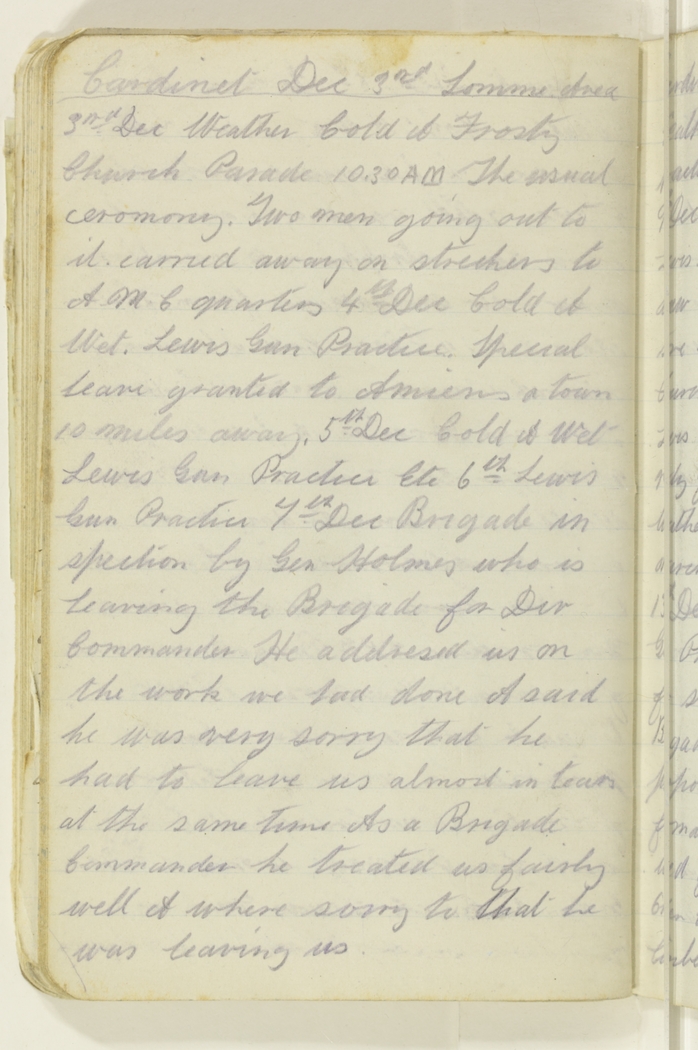 Cardinet Dec 3rd Somme Area
3rd Dec Weather Cold & Frosty
Church Parade 10.30 AM The usual
ceromony. Two men going out to
it. carried away on strechers to
A M C quarters 4th Dec Cold &
Wet. Lewis Gun Practice. Special
leave granted to Amiens a town
10 miles away. 5th Dec Cold & Wet
Lewis Gun Practice Etc 6th Lewis
Gun Practice 7th Dec Brigade in
spection by Gen Holmes who is
leaving the Brigade for Div
Commander He addresed us on
the work we had done & said
he was very sorry that he
had to leave us almost in tears
at the same time As a Brigade
Commander he treated us fairly
well & where sorry to that he
was leaving us.